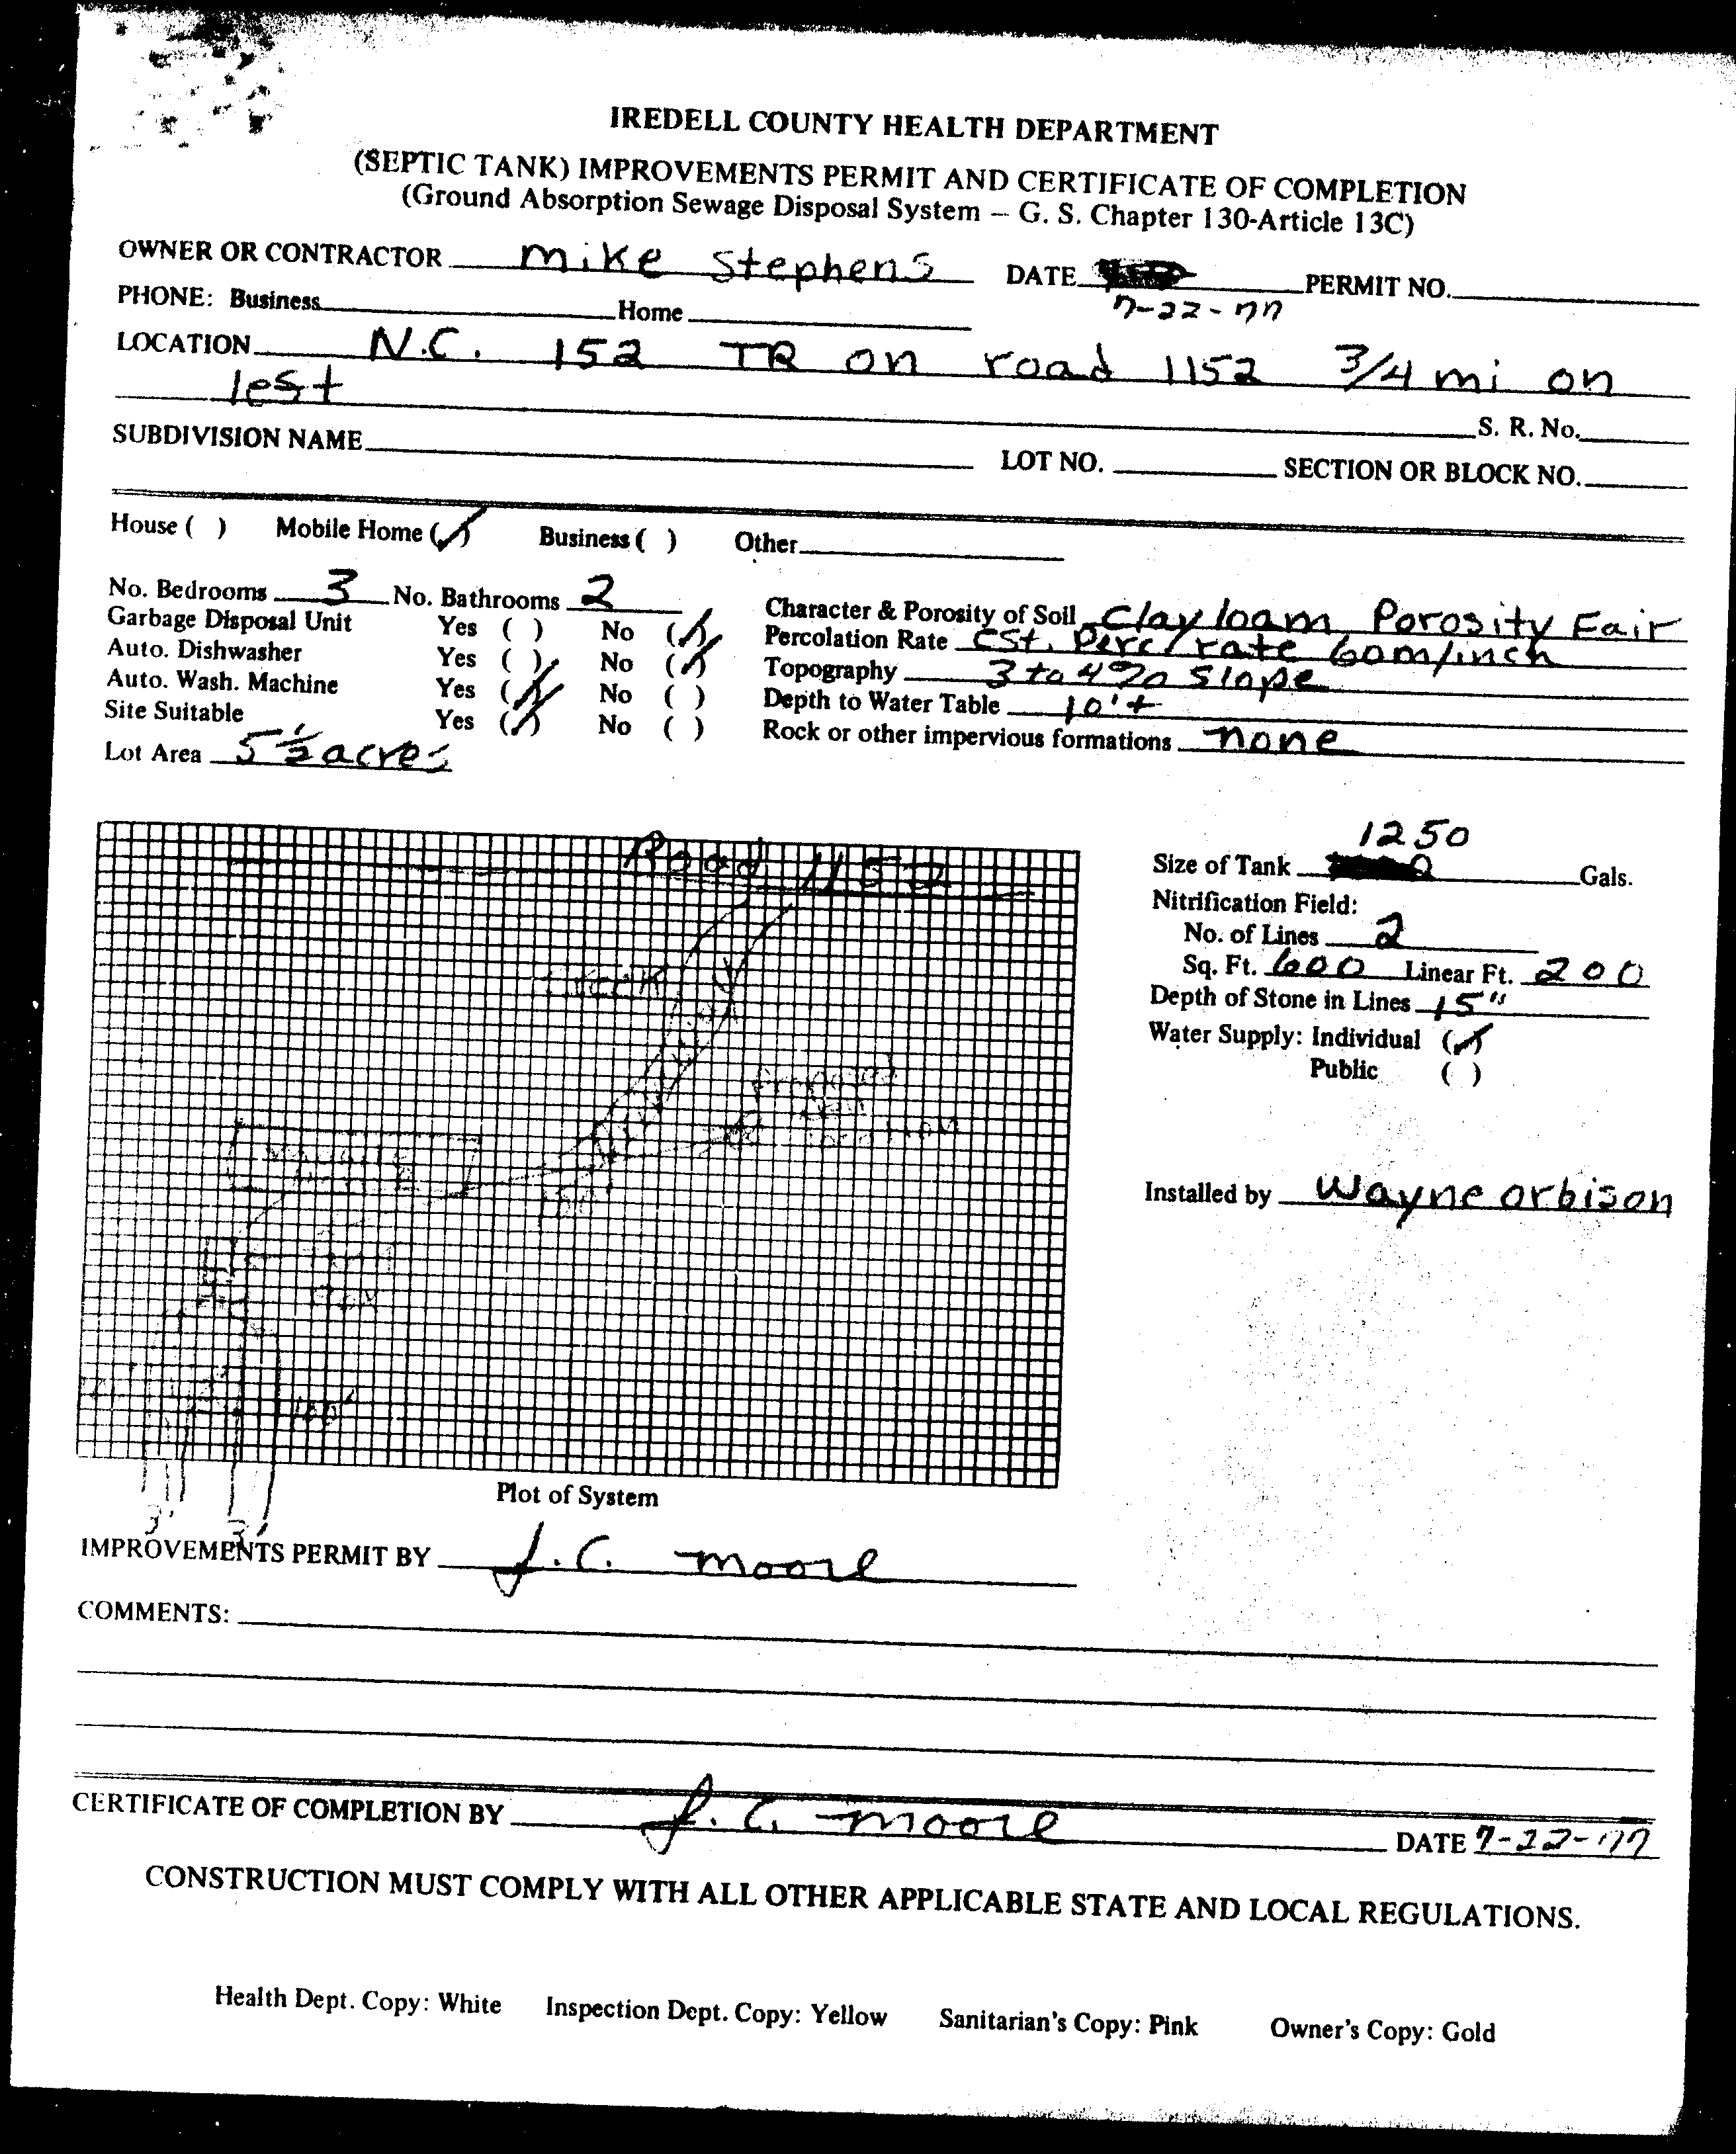 IREDELL COUNTY HEALTH DEPARTMENT
(SEPTIC TANK) IMPROVEMENTS PERMIT AND CERTIFICATE OF COMPLETION
(Ground Absorption Sewage Disposal System – G. S. Chapter 130-Article 13C)
OWNER OR CONTRACTOR Mike Stephens DATE PERMIT NO.
7-22-77
PHONE: Business Home
LOCATION N.C. 152 TR on road 1152 3/4 mi on
lest
S. R. No.
SUBDIVISION NAME LOT NO. SECTION OR BLOCK NO.
House ( ) Mobile Home (✓) Business ( ) Other
No. Bedrooms 3 No. Bathrooms 2
Garbage Disposal Unit Yes ( ) No (✓)
Auto. Dishwasher Yes ( ) No (✓)
Auto. Wash. Machine Yes (✓) No ( )
Site Suitable Yes (✓) No ( )
Lot Area 5 1/2 acres
Character & Porosity of Soil Clay loam Porosity Fair
Percolation Rate Est. Perc/rate 60m/inch
Topography 3 to 4% Slope
Depth to Water Table 10'+
Rock or other impervious formations none
Road 1152
100'
3' 3'
Plot of System
1250
Size of Tank Gals.
Nitrification Field:
No. of Lines 2
Sq. Ft. 600 Linear Ft. 200
Depth of Stone in Lines 15"
Water Supply: Individual (✓)
Public ( )
Installed by Wayne orbison
IMPROVEMENTS PERMIT BY J.C. Moore
COMMENTS:
CERTIFICATE OF COMPLETION BY J.C. Moore DATE 7-22-77
CONSTRUCTION MUST COMPLY WITH ALL OTHER APPLICABLE STATE AND LOCAL REGULATIONS.
Health Dept. Copy: White Inspection Dept. Copy: Yellow Sanitarian's Copy: Pink Owner's Copy: Gold